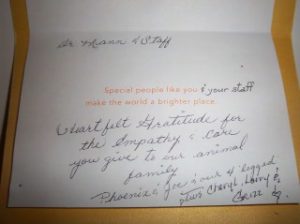 Dr. Mann & Staff
Special people like you & your staff
make the world a brighter place.
Heartfelt Gratitude for
the Empathy & Care
you give to our animal
family
Phoenix & Joe & our 4 legged
Cheryl, Harry &